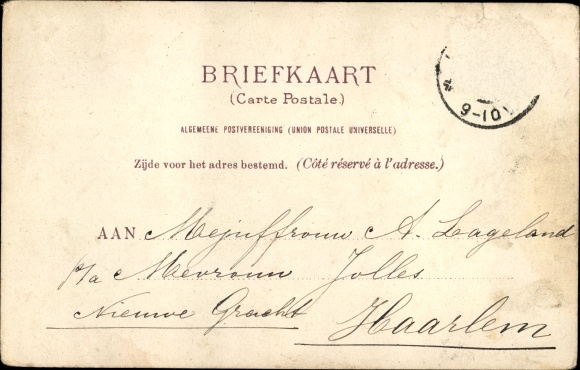 BRIEFKAART
(Carte Postale.)
ALGEMEENE POSTVEREENIGING (UNION POSTALE UNIVERSELLE)
Zijde voor het adres bestemd. (Côté réservé à l'adresse.)
9-10V
AAN Mejuffrouw A. Lageland
p/a Mevrouw Jolles
Nieuwe Gracht
Haarlem